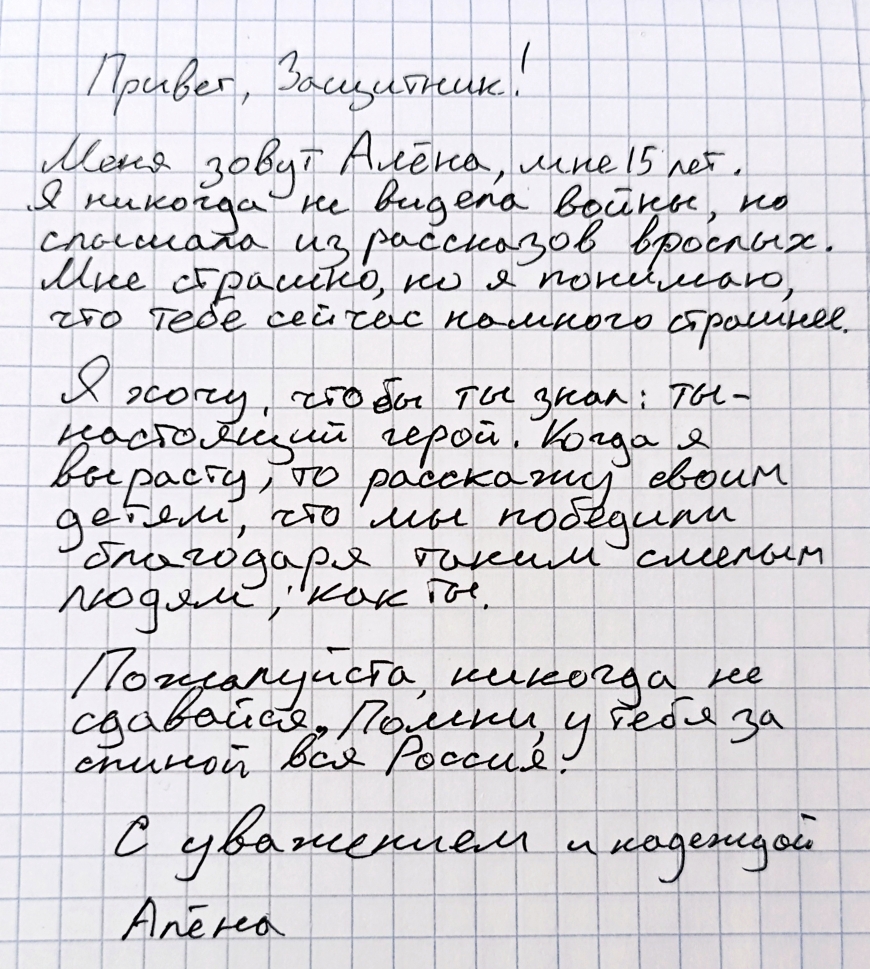 Привет, Защитник!
Меня зовут Алёна, мне 15 лет.
Я никогда не видела войны, но
слышала из рассказов врослых.
Мне страшно, но я понимаю,
что тебе сейчас намного страшнее.
Я хочу, чтобы ты знал: ты-
настоящий герой. Когда я
вырасту, то расскажу своим
детям, что мы победили
благодаря таким смелым
людям, как ты.
Пожалуйста, никогда не
сдавайся. Помни, у тебя за
спиной вся Россия.
С уважением и надеждой
Алёна